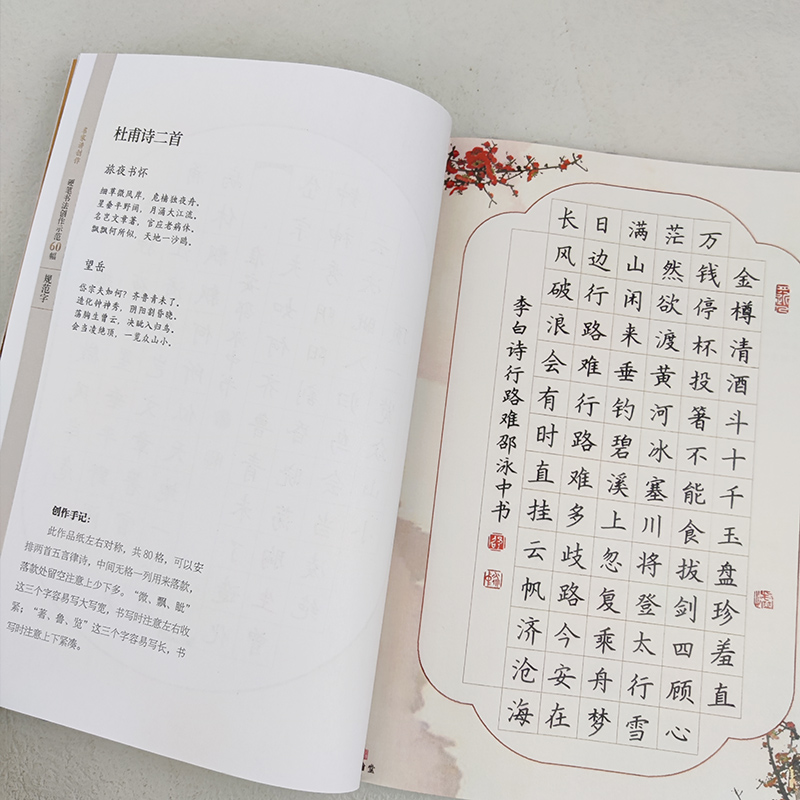 硬笔书法创作示范60幅
规范字
杜甫诗二首
旅夜书怀
细草微风岸，危樯独夜舟。
星垂平野阔，月涌大江流。
名岂文章著，官应老病休。
飘飘何所似，天地一沙鸥。
望岳
岱宗夫如何？齐鲁青未了。
造化钟神秀，阴阳割昏晓。
荡胸生曾云，决眦入归鸟。
会当凌绝顶，一览众山小。
创作手记：
此作品纸左右对称，共80格，可以安
排两首五言律诗，中间无格一列用来落款，
落款处留空注意上少下多。“微、飘、眦”
这三个字容易写大写宽，书写时注意左右收
紧；“著、鲁、览”这三个字容易写长，书
写时注意上下紧凑。
金樽清酒斗十千玉盘珍羞直
万钱停杯投箸不能食拔剑四顾心
茫然欲渡黄河冰塞川将登太行雪
满山闲来垂钓碧溪上忽复乘舟梦
日边行路难行路难多歧路今安在
长风破浪会有时直挂云帆济沧海
李白诗行路难邵泳中书